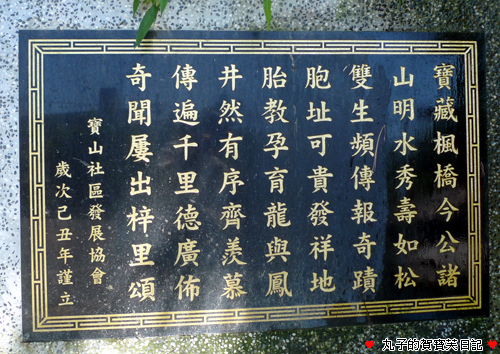 寶藏楓橋今公諸
山明水秀壽如松
雙生頻傳報奇蹟
胞址可貴發祥地
胎教孕育龍與鳳
井然有序齊羨慕
傳遍千里德廣佈
奇聞屢出梓里頌
寶山社區發展協會
歲次己丑年謹立
♥ 丸子的賀寶芙日記 ♥